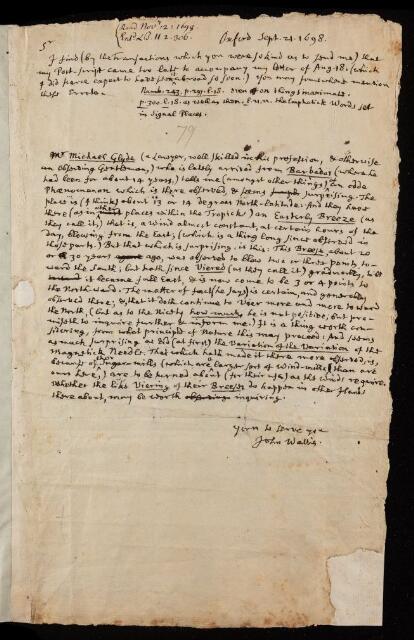 Read Nov. 2: 1698.
Oxford Sept. 21. 1698.
Sr
I find (by the Transactions which you were so kind as to send me) that
my Post-script came too late to accompany my letter of Aug. 18. (which
I did scarce expect to have been abroad so soon.) You may please to mention
these Errata.
79
Mr Michael Glyde (a Lawyer, well skilled in his profession, & otherwise
an observing Gentleman,) who is lately arrived from Barbados (where he
had been for about 14 years,) tells me (amongst other things) an odd
Phaenomenon which is there observed, & seems surprising. The
place is (I think) about 13 or 14 degrees North-latitude: And they have
there (as in most other places within the Tropicks) an Easterly Breeze (as
they call it,) that is, a wind almost constant, at certain hours of the
day, blowing from the East; (which is a thing long since observed in
those parts.) But that which is surprising, is this: This Breese, about 20
or 30 years ago, was observed to blow two or three points to-
ward the South; but hath since Viered (as they call it) gradually, till
it became full East, & is now come to be 3 or 4 points to
the North-ward. The matter of fact (he says) is certain, and generally
observed there; & that it doth continue to Vier more and more toward
the North, (but as to the Nicety how much, he is not positive, but pro-
miseth to inquire further & inform me.) It is a thing worth con-
sidering, from what principle of Nature this may proceed: And seems
as much surprising as did (at first) the Variation of the Variation of the
Magnetick Needle. That which hath made it there more observed, is,
because their Sugar-mills (which are a larger sort of Wind-mills than are
ours here,) are to be turned about (for their use) as the winds require.
Whether the like Viering of their Breese do happen in other Islands
there about, may be worth inquiring.
Yours to serve you
John Wallis.